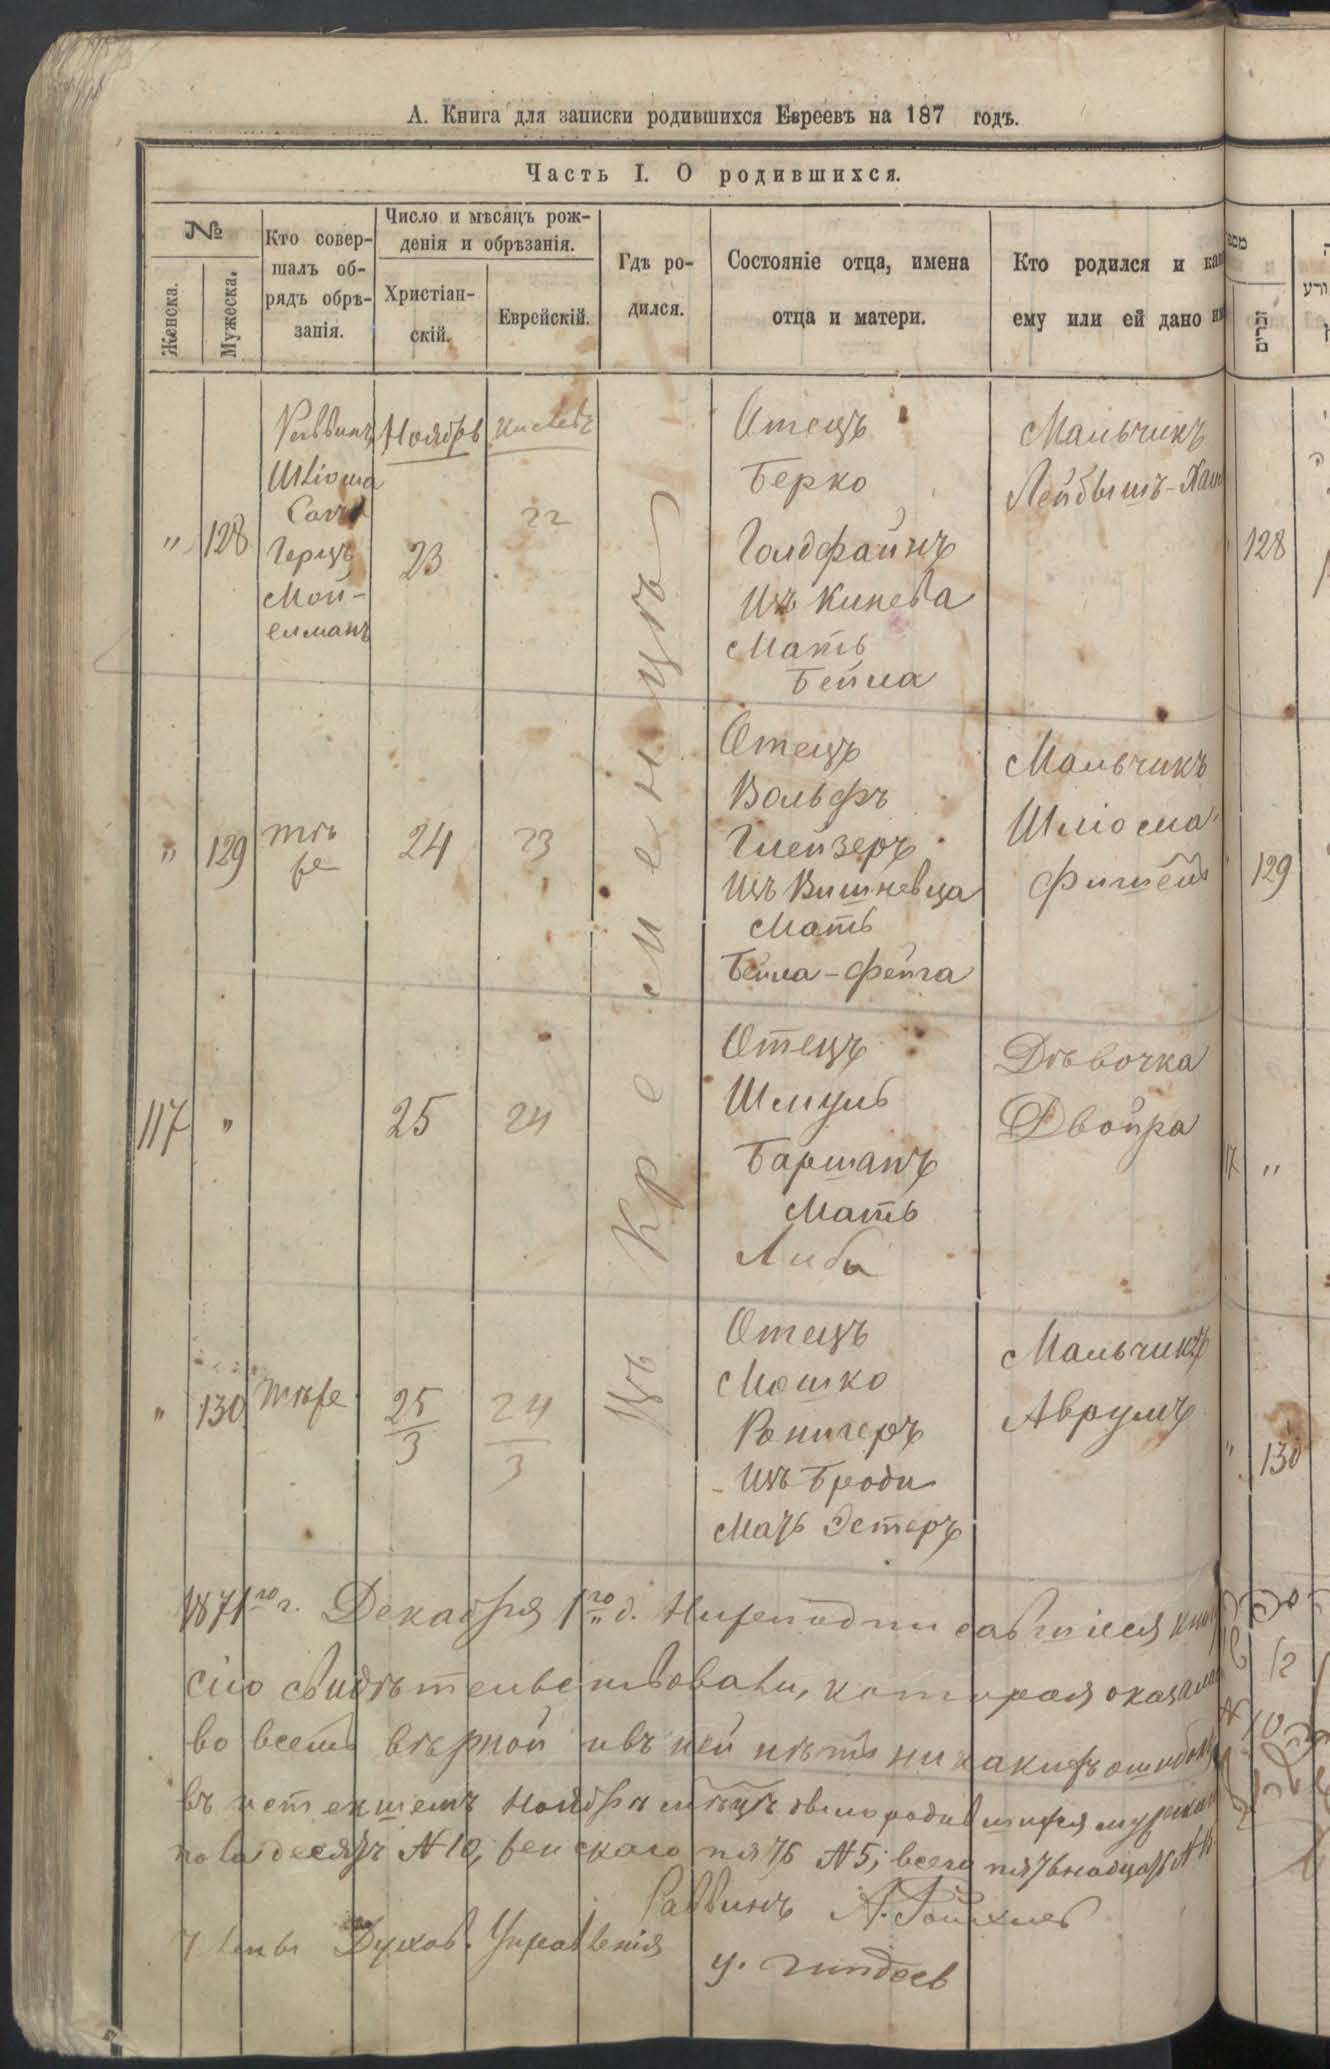 А. Книга для записки родившихся Евреевъ на 187 годъ.
Часть I. О родившихся.
№
Женска.
Мужеска.
Кто совер-
шалъ об-
рядъ обрѣ-
занія.
Число и мѣсяцъ рож-
денія и обрѣзанія.
Христіан-
скій.
Еврейскій.
Гдѣ ро-
дился.
Состояніе отца, имена
отца и матери.
Кто родился и
ему или ей дано
זכרים
Въ Кременцѣ
" 128
Раввинъ
Шліома
Герцъ
Мой-
елманъ
Ноябрь
23
Кислевъ
22
Отецъ
Берко
Голдфайнъ
Изъ Кинева
Мать
Бейла
Мальчикъ
Лейбышъ-
128
" 129
тотъ
же
24
23
Отецъ
Вольфъ
Глейзеръ
Изъ Вишневца
Мать
Бейла-Фейга
Мальчикъ
Шліома
Фишель
129
117 "
25
24
Отецъ
Шмуль
Баршапъ
Мать
Либа
Дѣвочка
Двойра
17 "
" 130
тотъ же
25
3
24
3
Отецъ
Мошко
Изъ Броди
Мать Эстеръ
Мальчикъ
Аврумъ
" 130
1871го г. Декабря 1го д. Нижеподписавшіеся
сію свидѣтельствовали, которая оказалась
во всемъ вѣрной и въ ней нѣтъ никакихъ ошибокъ
въ истекшемъ Ноябрѣ мѣсяцѣ было родившихся мужскаго
пола десять №10, женскаго пять №5, всего пятьнадцать
Раввинъ
Члены Духов. Управленія